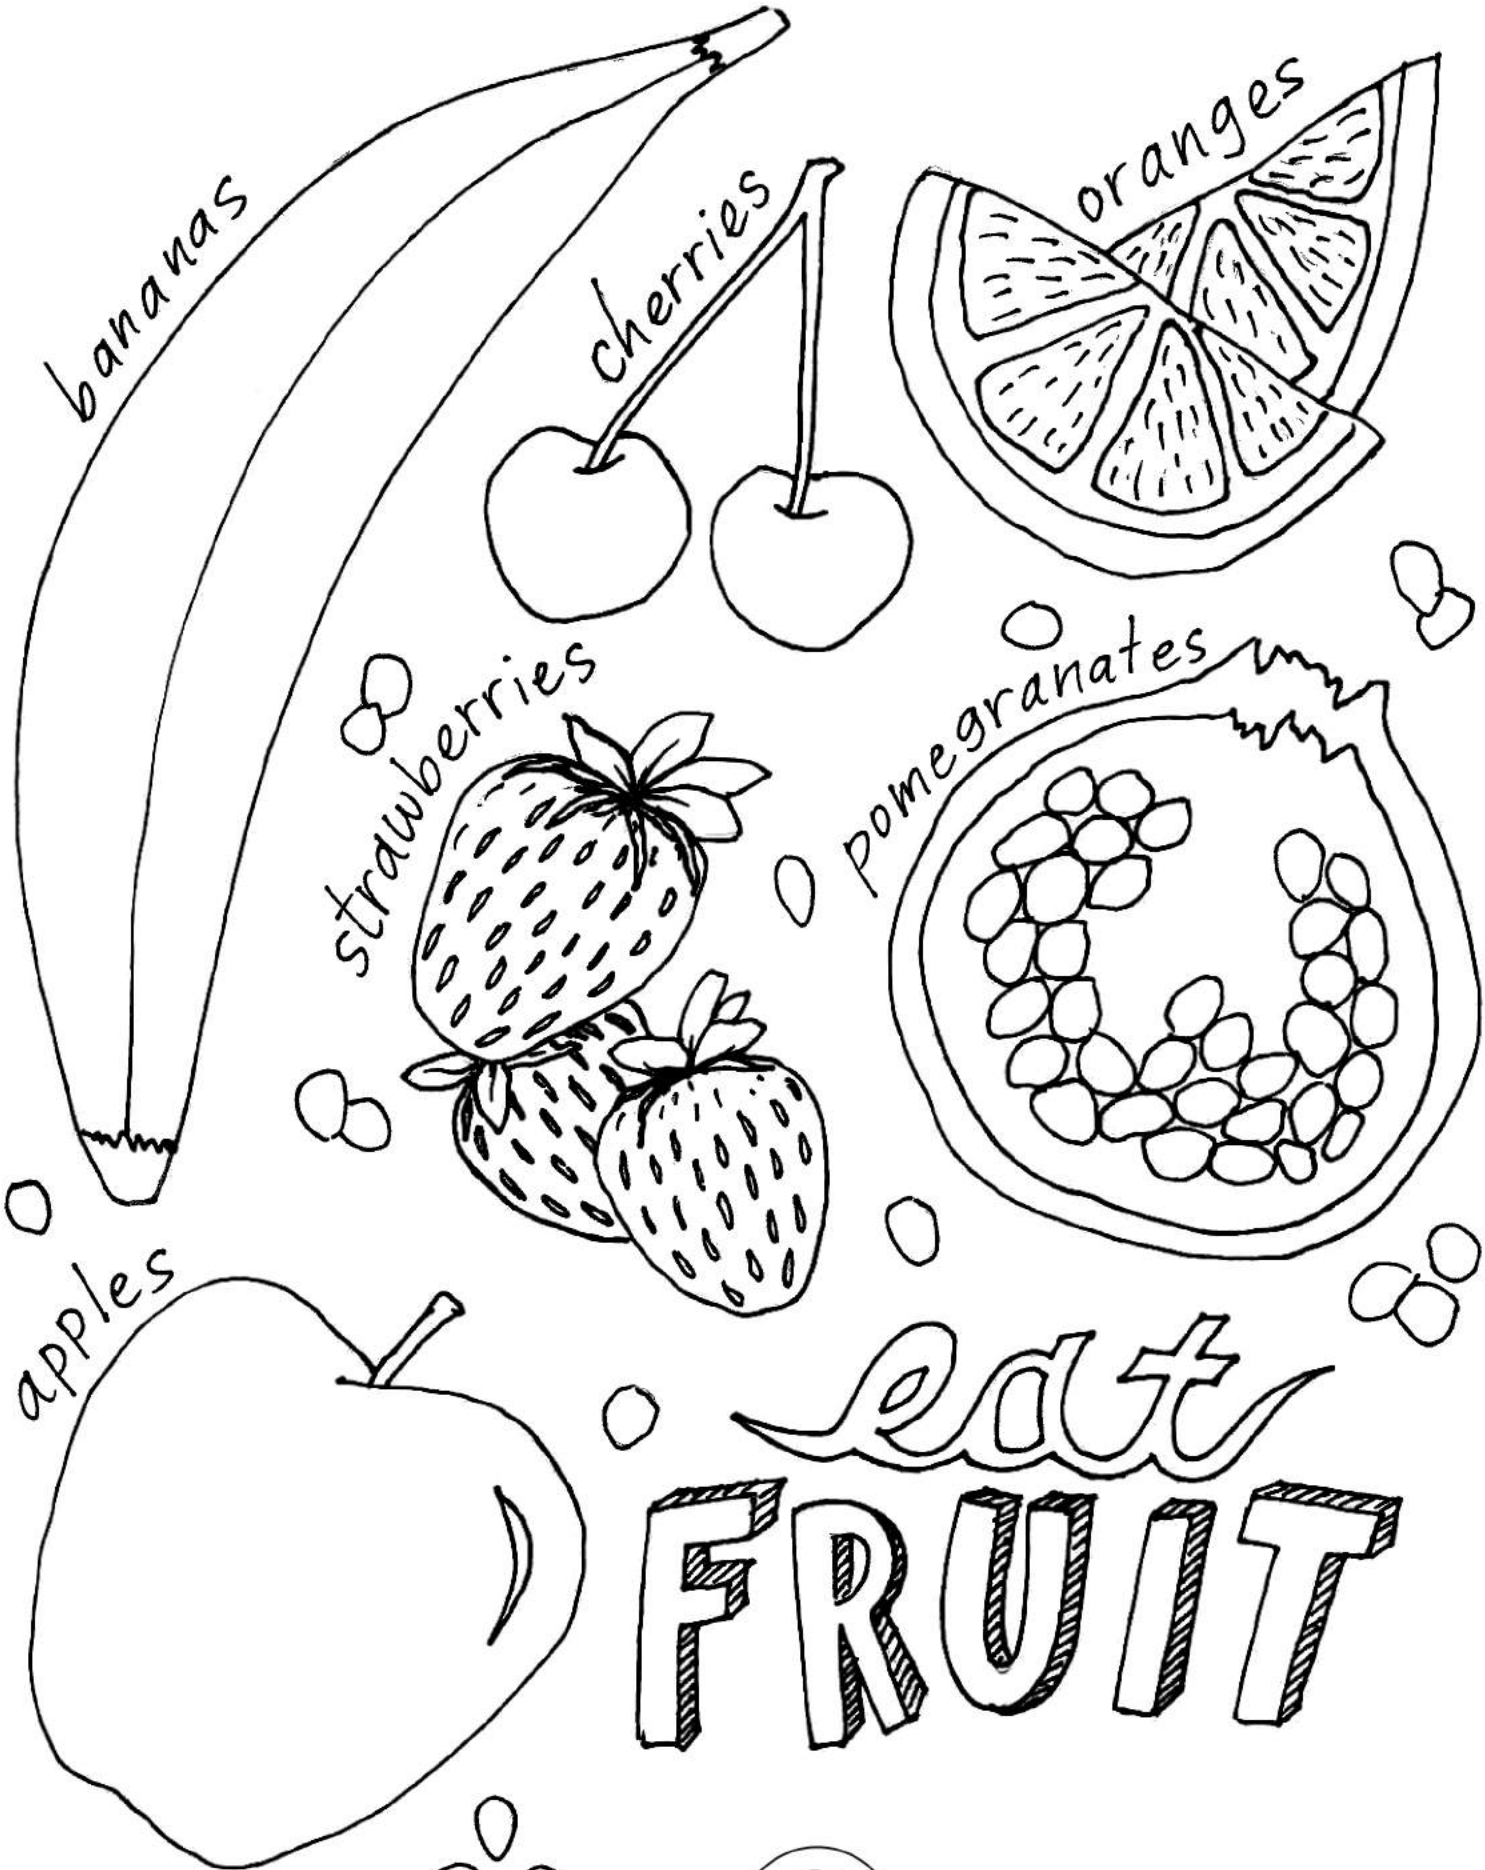 bananas
cherries
oranges
strawberries
pomegranates
apples
eat
FRUIT